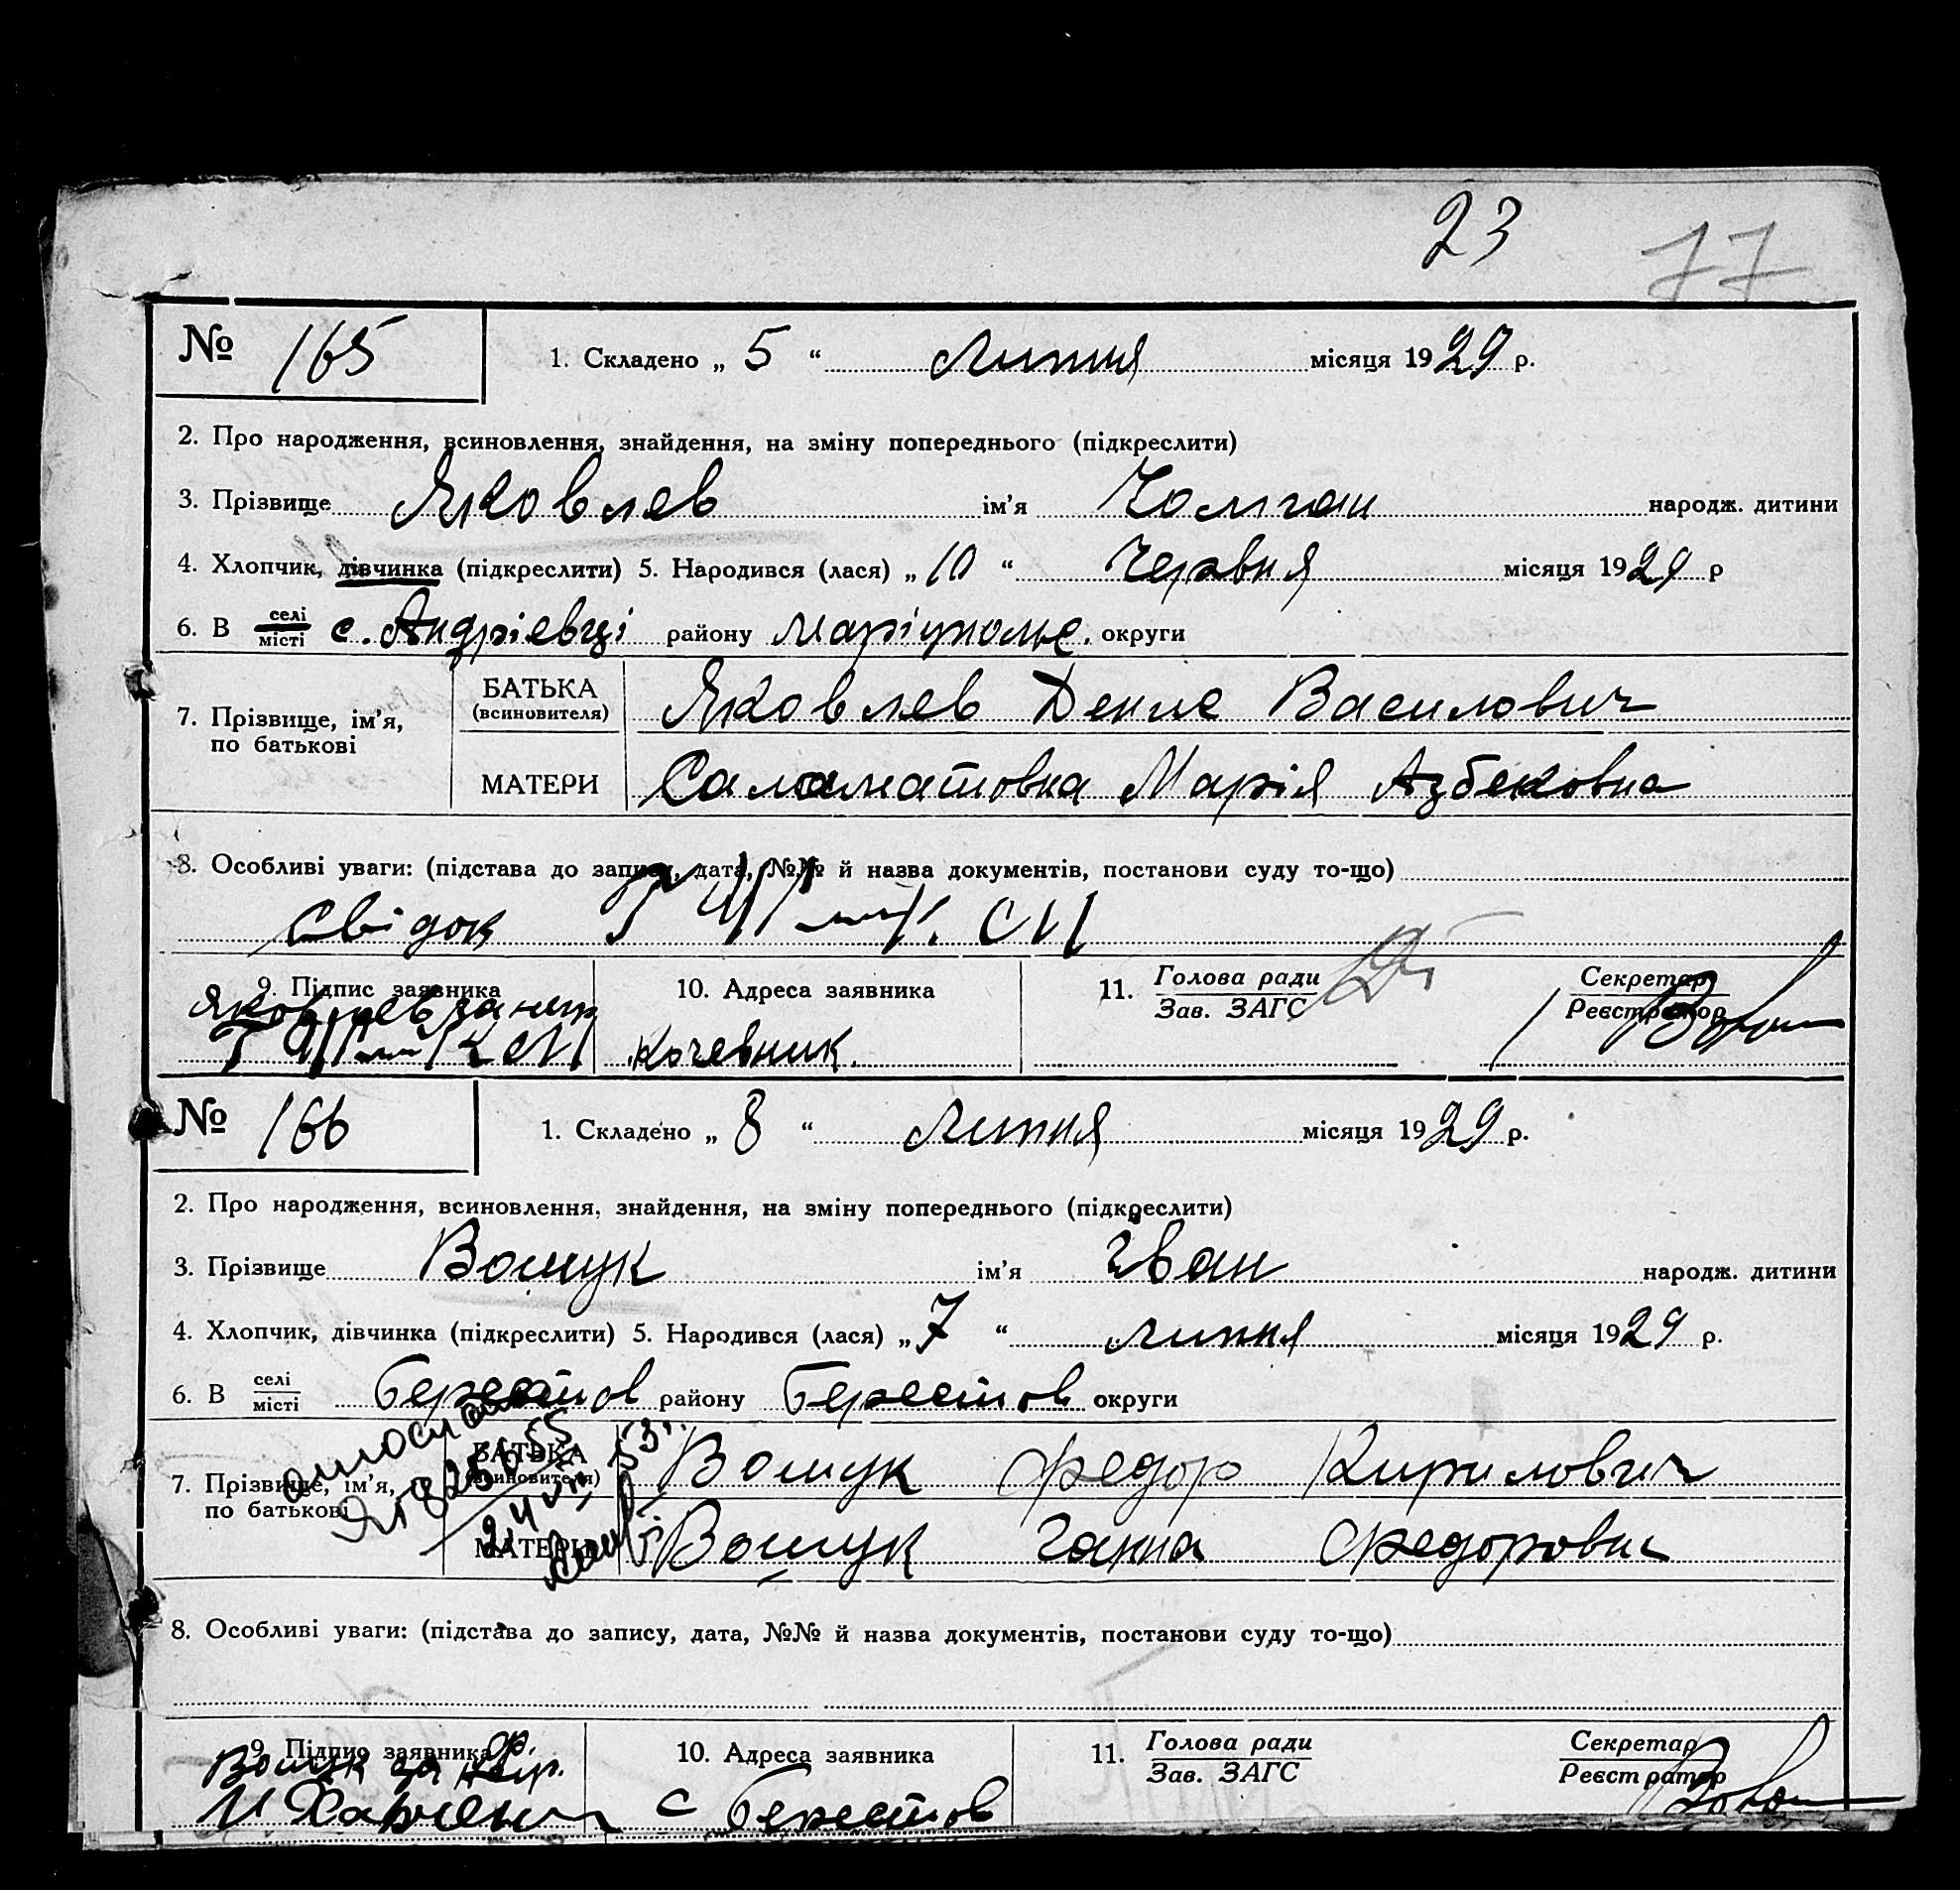 23 77
№ 165 1. Складено „ 5 “ Липня місяця 1929 р.
2. Про народження, всиновлення, знайдення, на зміну попереднього (підкреслити)
3. Прізвище Яковлев ім’я Чолган народж. дитини
4. Хлопчик, дівчинка (підкреслити) 5. Народився (лася) „ 10 “ Червня місяця 1929 р
6. В селі місті с. Андріевці району Маріуполье. округи
7. Прізвище, ім’я, по батькові
БАТЬКА (всиновителя) Яковлев Денис Василович
МАТЕРИ Саламатовна Марія Азбековна
8. Особливі уваги: (підстава до запису, дата, №№ й назва документів, постанови суду то-що)
Свідок
9. Підпис заявника 10. Адреса заявника 11. Голова ради Зав. ЗАГС Секретар Реєстратор
Яковлев за неп
кочевник.
№ 166 1. Складено „ 8 “ Липня місяця 1929 р.
2. Про народження, всиновлення, знайдення, на зміну попереднього (підкреслити)
3. Прізвище Вощук ім’я Іван народж. дитини
4. Хлопчик, дівчинка (підкреслити) 5. Народився (лася) „ 7 “ липня місяця 1929 р.
6. В селі місті Берестов району Берестов округи
7. Прізвище, ім’я, по батькові
БАТЬКА (всиновителя) Вощук Федор Кирилович
МАТЕРИ Вощук Ганна Федоровна
8. Особливі уваги: (підстава до запису, дата, №№ й назва документів, постанови суду то-що)
9. Підпис заявника 10. Адреса заявника 11. Голова ради Зав. ЗАГС Секретар Реєстратор
Вощук за
с Берестов